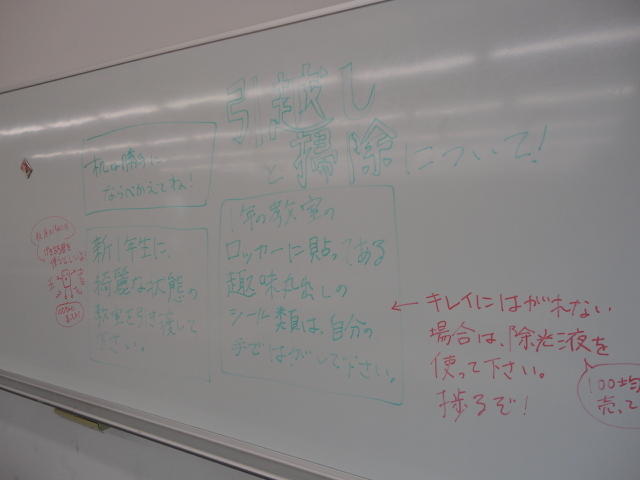 引越し
と掃除について!
机は勝手に
ならべかえてね!
新1年生に、
綺麗な状態の
教室を引き渡して
下さい。
1年の教室の
ロッカーに貼ってある
趣味丸出しの
シール類は、自分の
手ではがして下さい。
← キレイにはがれない
場合は、除光液を
使って下さい。
捗るぞ!
100均
売って